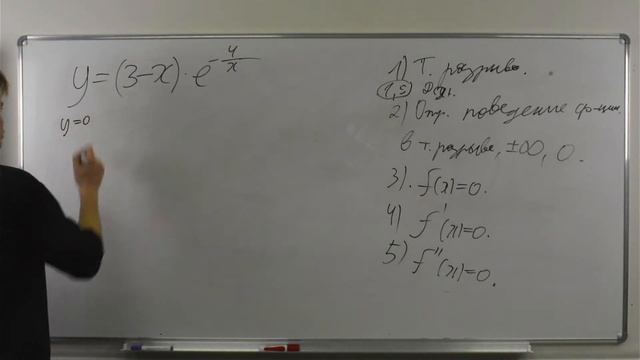 y=(3-x)·e^{-4/x}
y=0
1) Т. разрыва.
2) Опр. поведение ф-ции
в т. разрыва, ±∞, 0.
3). f(x)=0.
4) f'(x)=0.
5) f''(x)=0.